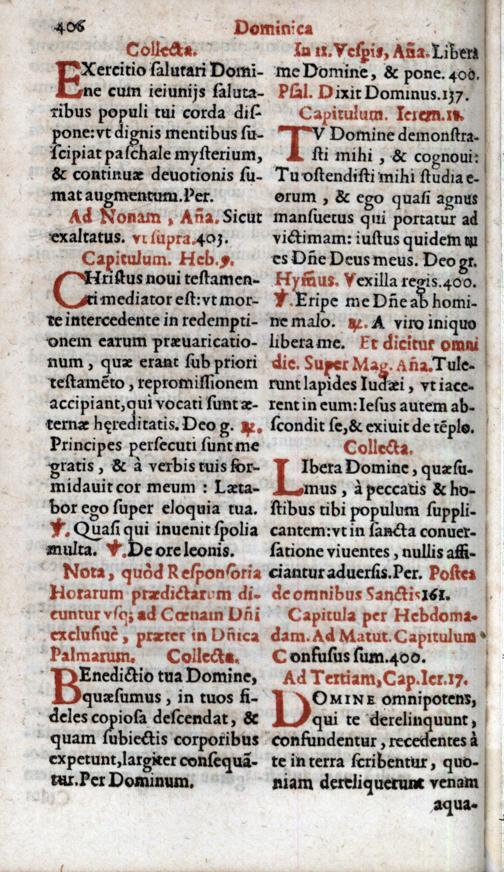 406
Dominica
Collecta.
EXercitio ſalutari Domi-
ne cum ieiunijs ſaluta-
ribus populi tui corda diſ-
pone: vt dignis mentibus ſu-
ſcipiat paſchale myſterium,
& continuæ deuotionis ſu-
mat augmentum. Per.
Ad Nonam, Aña. Sicut
exaltatus. vt ſupra. 403.
Capitulum. Heb. 9.
CHriſtus noui teſtamen-
ti mediator eſt: vt mor-
te intercedente in redempti-
onem earum præuaricatio-
num, quæ erant ſub priori
teſtamẽto, repromiſſionem
accipiant, qui vocati ſunt æ-
ternæ hęreditatis. Deo g. ℟.
Principes perſecuti ſunt me
gratis, & à verbis tuis for-
midauit cor meum: Læta-
bor ego ſuper eloquia tua.
℣. Quaſi qui inuenit ſpolia
multa. ℣. De ore leonis.
Nota, quòd Reſponſoria
Horarum prædictarum di-
cuntur vſq; ad Cœnam Dñi
excluſiuè, præter in Dñica
Palmarum. Collecta.
BEnedictio tua Domine,
quæſumus, in tuos fi-
deles copioſa deſcendat, &
quam ſubiectis corporibus
expetunt, largiter conſequã-
tur. Per Dominum.
In 11. Veſpis, Aña. Libera
me Domine, & pone. 400.
Pſal. Dixit Dominus. 137.
Capitulum. Ierem. 11.
TV Domine demonſtra-
ſti mihi, & cognoui:
Tu oſtendiſti mihi ſtudia e-
orum, & ego quaſi agnus
manſuetus qui portatur ad
victimam: iuſtus quidem tu
es Dñe Deus meus. Deo gr.
Hym̃us. Vexilla regis. 400.
℣. Eripe me Dñe ab homi-
ne malo. ℟. A viro iniquo
libera me. Et dicitur omni
die. Super Mag. Aña. Tule-
runt lapides Iudæi, vt iace-
rent in eum: Ieſus autem ab-
ſcondit ſe, & exiuit de tẽplo.
Collecta.
LIbera Domine, quæſu-
mus, à peccatis & ho-
ſtibus tibi populum ſuppli-
cantem: vt in ſancta conuer-
ſatione viuentes, nullis affi-
ciantur aduerſis. Per. Poſtea
de omnibus Sanctis 161.
Capitula per Hebdoma-
dam. Ad Matut. Capitulum
Confuſus ſum. 400.
Ad Tertiam, Cap. Ier. 17.
DOMINE omnipotens,
qui te derelinquunt,
confundentur, recedentes à
te in terra ſcribentur, quo-
niam dereliquerunt venam
aqua-